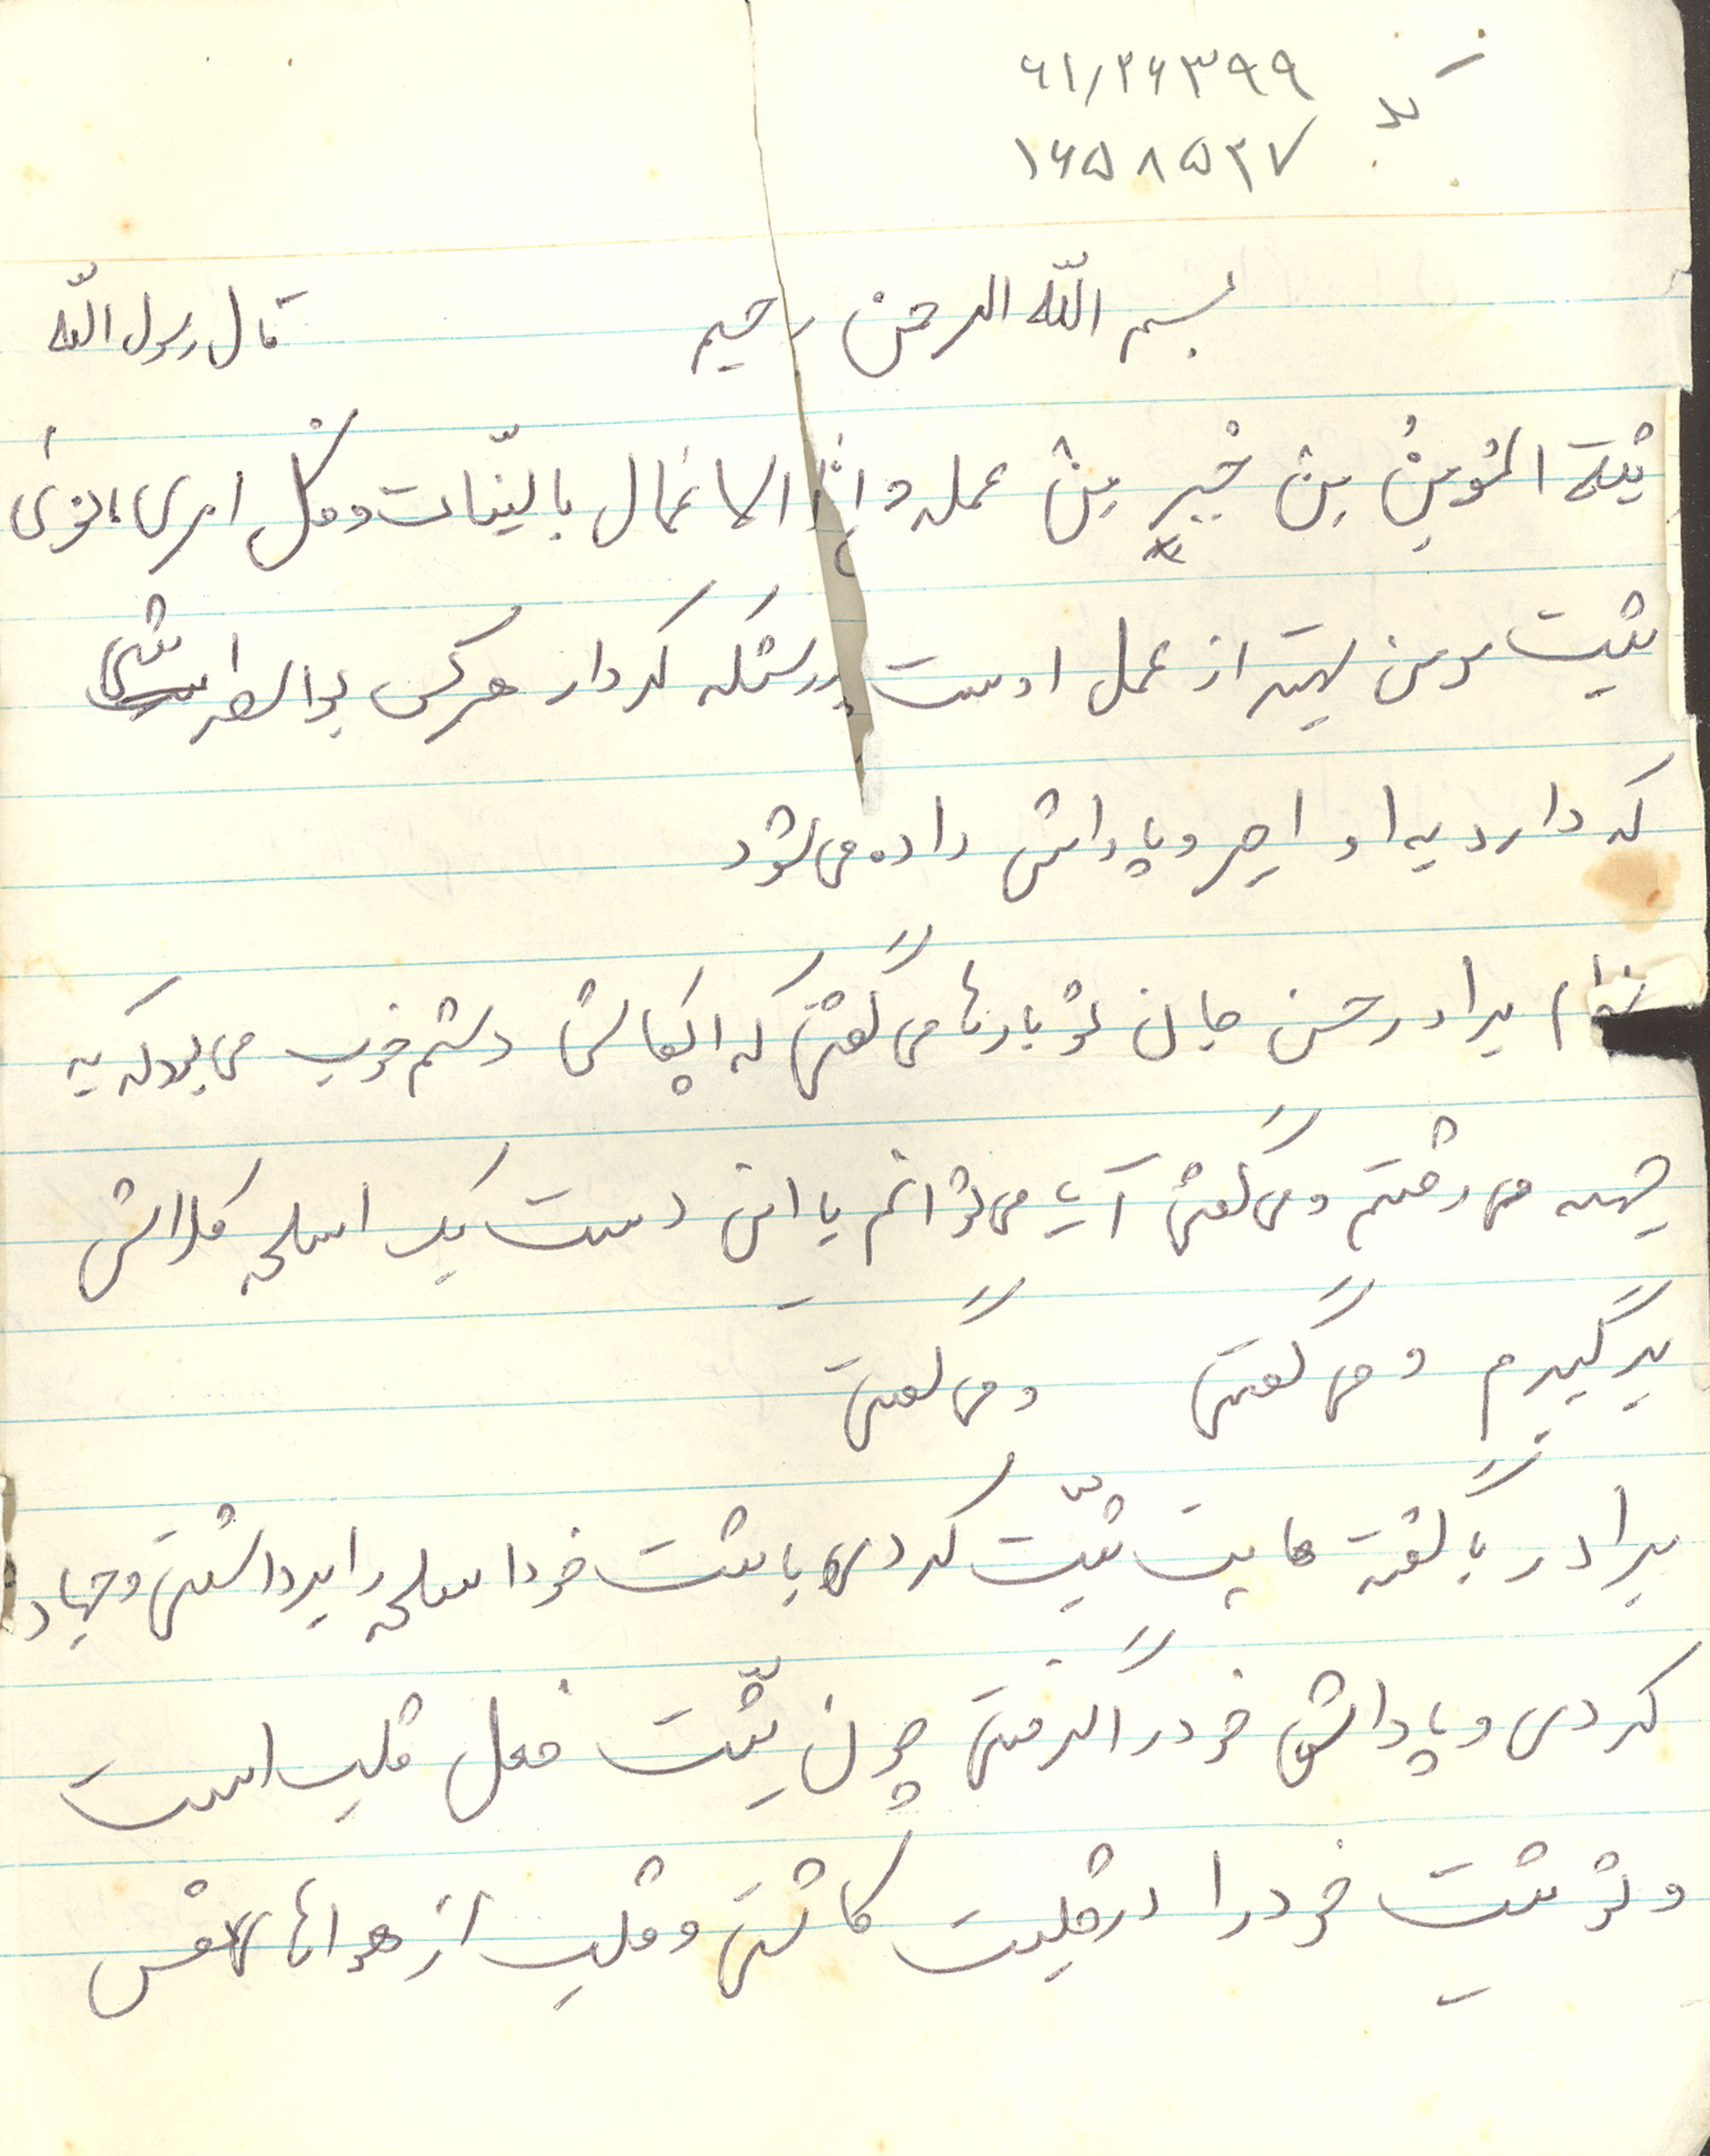 کد ۶۱/۲۶۳۹۹
۱۶۵۸۵۲۷
بسم اللّه الرحمن رحیم قال رسول اللّه
نیّة المُومِنْ مِنْ خَیْرٍ مِنْ عمله و اِنَّما الاعمال بالنیّات و لکل امریء نویٰ
نیت مومن بهتر از عمل اوست بدرستکه کردار هرکس بواسطه نیتی
که دارد به او اجر و پاداش داده می‌شود
برادر حسن جان تو بارها می گفتی که ایکاش دستم خوب می بود که به
جبهه می رفتم و می گفتی آیا می توانم با این دست یک اسلحه کلاش
برگیرم و می گفتی و می گفتی
برادر با گفته هایت نیّت کردی با نیت خود اسلحه را برداشتی و جهاد
کردی و پاداش خود را گرفتی چون نیّت فعل قلب است
و تو نیت خود را در قلبت کاشتی و قلب از هواهای نفس